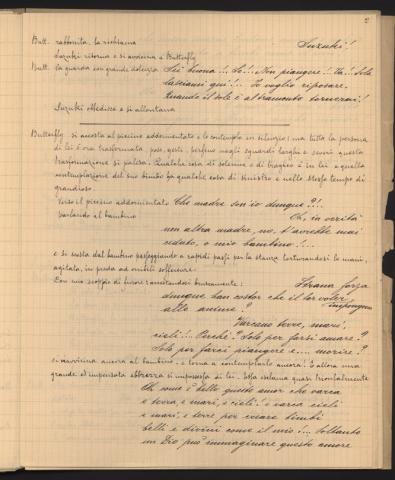 2
Butt. rabbonita la richiama Suzuki!
Suzuki ritorna e si avvicina a Butterfly
Butt. la guarda con grande dolcezza Sei buona!! Sì!.. Non piangere! Va! Sola
lasciami qui!... Io voglio riposare.
Quando il sole è al tramonto tornerai!
Suzuki obbedisce e si allontana
Butterfly si accosta al piccino addormentato e lo contempla in silenzio; ma tutta la persona
di lei è ora trasformata, pose, gesti, perfino negli sguardi larghi e severi questa
trasformazione si palesa. Qualche cosa di solenne e di tragico è in lei e quella
contemplazione del suo bimbo ha qualche cosa di sinistro e nello stesso tempo di
grandioso.
verso il piccino addormentato Che madre son io dunque?!..
parlando al bambino Oh, in verità
non altra madre, no, t'avrebbe mai
veduto, o mio bambino!...
e si scosta dal bambino passeggiando a rapidi passi per la stanza torturandosi le mani,
agitata, in preda ad orribili sofferenze:
Con uno scoppio di furore Strana forza
dunque han costor che il lor voler
impongono
alle anime!
Varcano terre, mari,
cieli!... Perchè? Solo per farsi amare?
Solo per farci piangere e... morire?
si avvicina ancora al bambino e torna a contemplarlo ancora! E allora una
grande ed impensata ebbrezza si impossessa di lei. Essa esclama quasi trionfalmente
Oh come è bello questo amor che varca
e terra, e mari, e cieli! e varca cieli
e mari, e terre per creare bimbi
belli e divini come il mio!... Soltanto
un Dio può immaginare questo amore